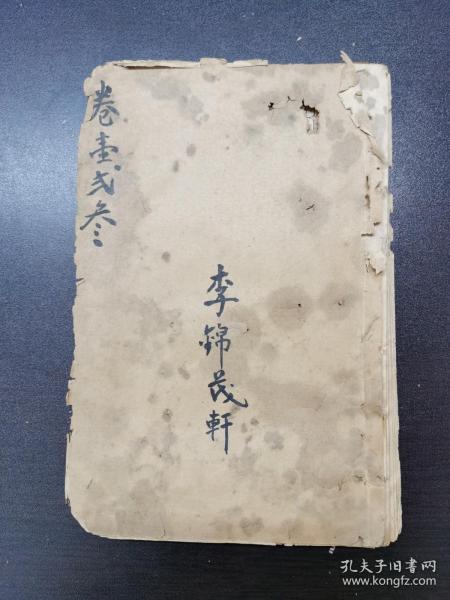 卷壹弍叁
李錦茂軒
孔夫子旧书网
www.kongfz.com